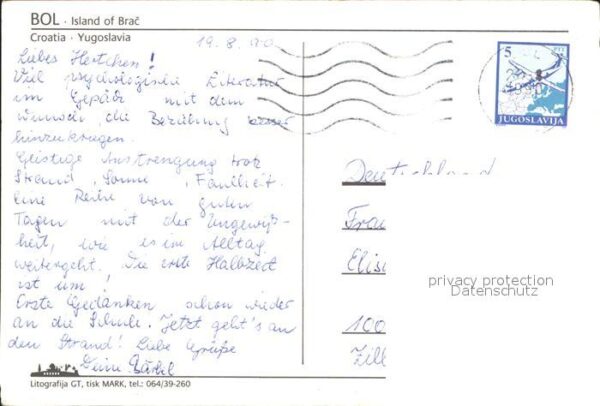 BOL · Island of Brač
Croatia · Yugoslavia
19.8.90
Liebes Hertchen!
Viel psychologische Literatur
im Gepäck mit dem
die Beziehung
hinzukriegen.
Geistige Anstrengung trotz
Strand, Sonne, Faulheit.
Eine Reihe von guten
Tagen mit der Ungewiß-
heit, wie es im Alltag
weitergeht. Die erste Halbzeit
ist um,
Erste Gedanken schon wieder
an die Schule. Jetzt geht's an
den Strand! Liebe Grüße
Deine Bärbel
Litografija GT, tisk MARK, tel.: 064/39-260
5
PTT
JUGOSLAVIJA
Deutschland
Frau
Elis
privacy protection
Datenschutz
100
Zill